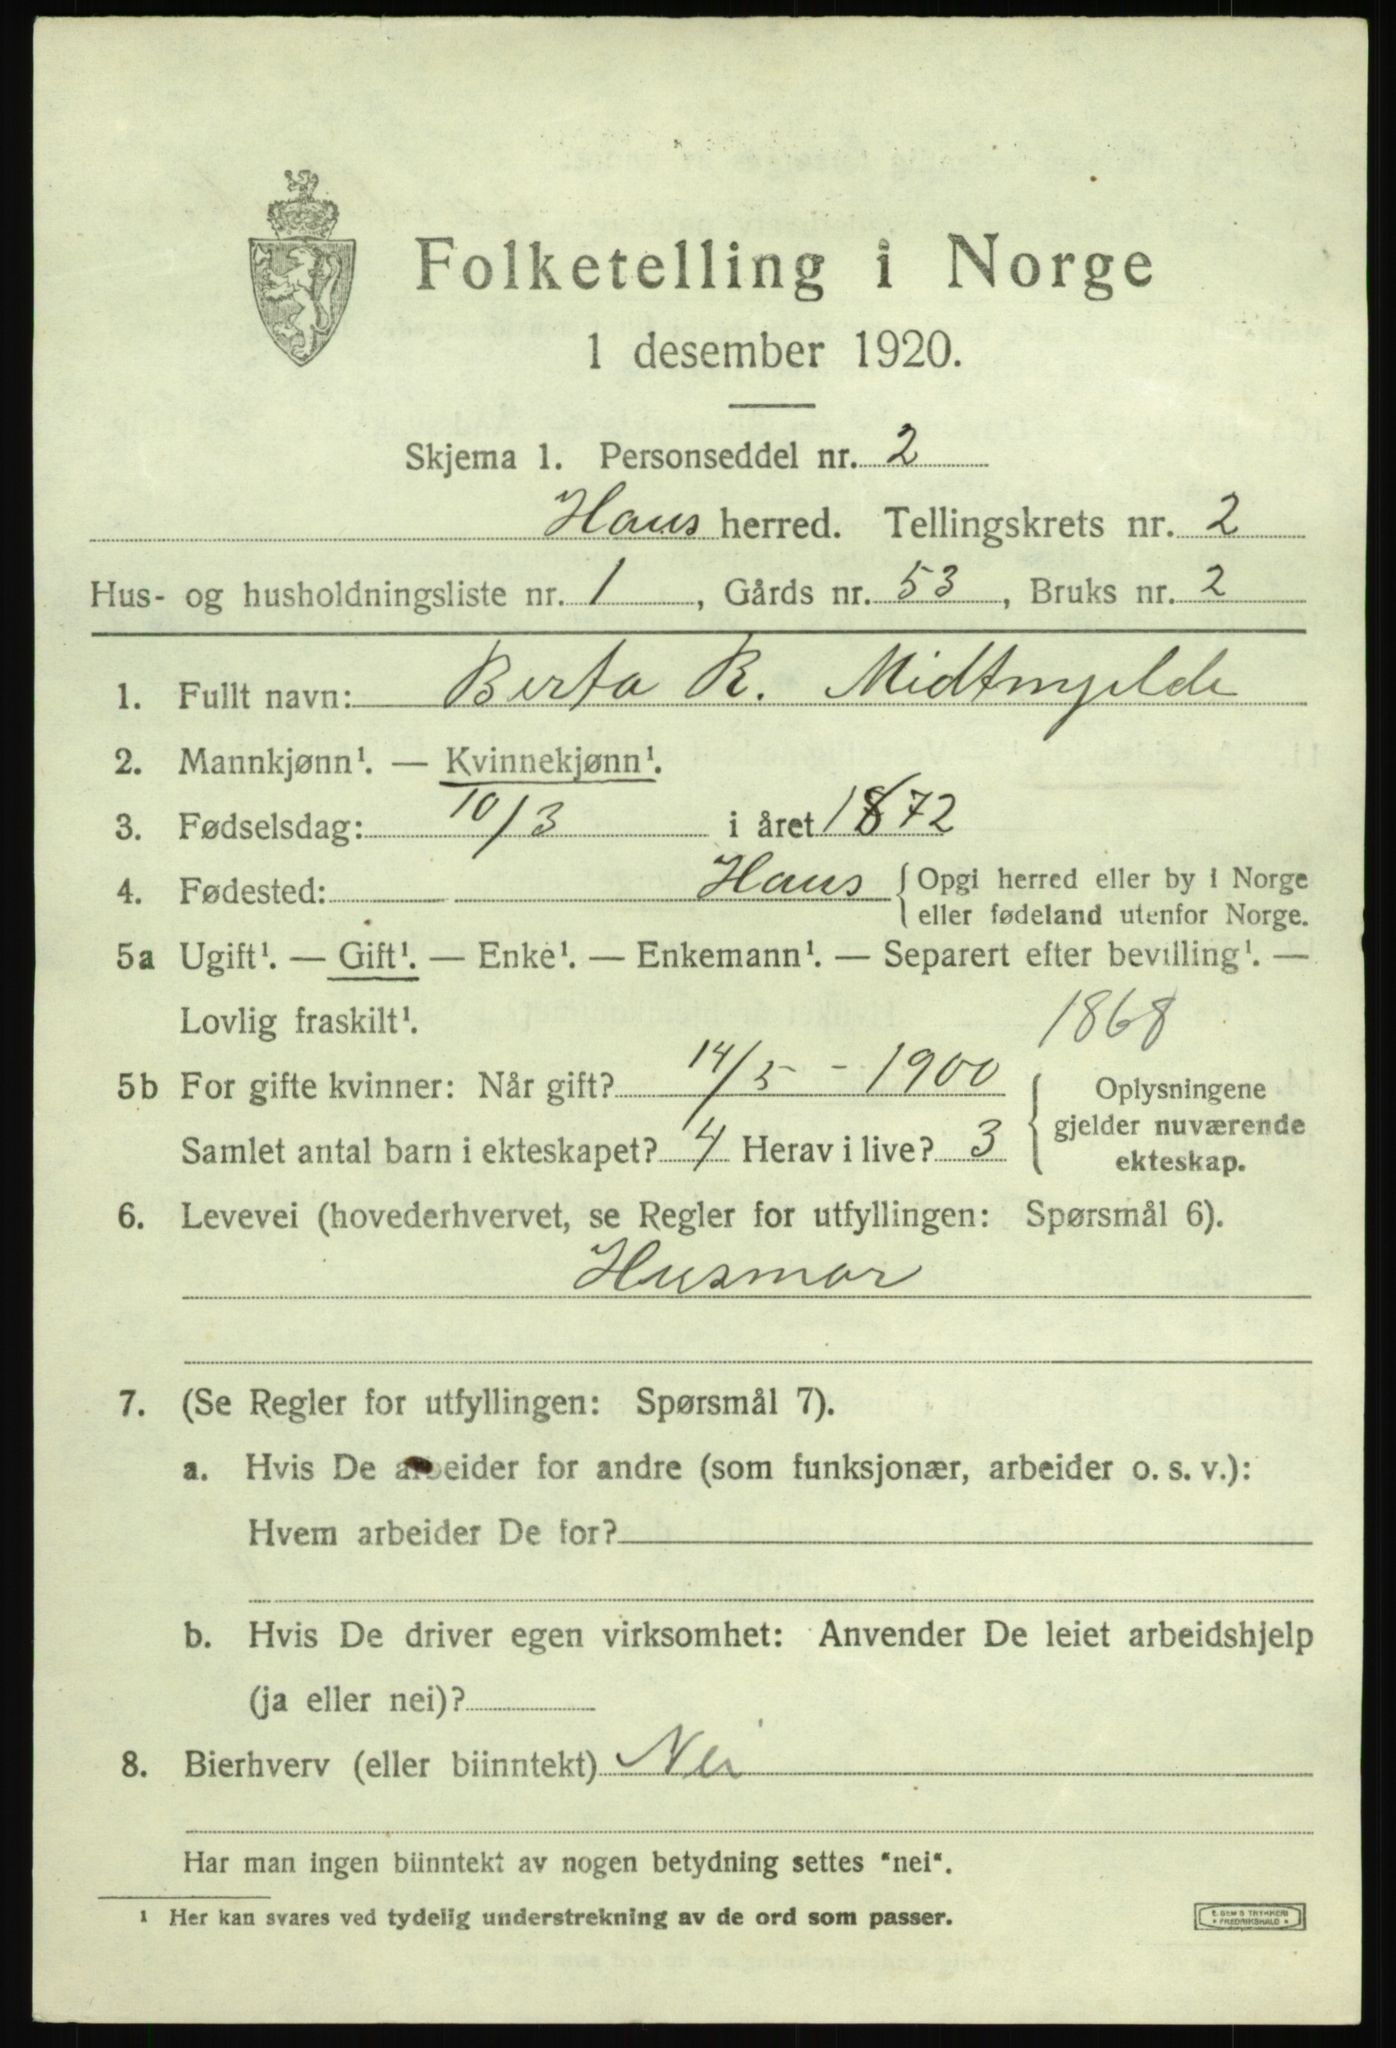 Folketelling i Norge
1 desember 1920.
Skjema 1. Personseddel nr. 2
Haus herred. Tellingskrets nr. 2
Hus- og husholdningsliste nr. 1, Gårds nr. 53, Bruks nr. 2
1. Fullt navn: Berta R. Midtmyelde
2. Mannkjønn¹. — Kvinnekjønn¹.
3. Fødselsdag: 10/3 i året 1872
4. Fødested: Haus { Opgi herred eller by i Norge
eller fødeland utenfor Norge.
5a Ugift¹. — Gift¹. — Enke¹. — Enkemann¹. — Separert efter bevilling¹. —
Lovlig fraskilt¹.
1868
5b For gifte kvinner: Når gift? 14/5 - 1900
Samlet antal barn i ekteskapet? 4 Herav i live? 3
{ Oplysningene
gjelder nuværende
ekteskap.
6. Levevei (hovederhvervet, se Regler for utfyllingen: Spørsmål 6).
Husmor
7. (Se Regler for utfyllingen: Spørsmål 7).
a. Hvis De arbeider for andre (som funksjonær, arbeider o. s. v.):
Hvem arbeider De for?
b. Hvis De driver egen virksomhet: Anvender De leiet arbeidshjelp
(ja eller nei)?
8. Bierhverv (eller biinntekt) Nei
Har man ingen biinntekt av nogen betydning settes "nei".
¹ Her kan svares ved tydelig understrekning av de ord som passer.
E. SEM'S TRYKKERI
* FREDRIKSHALD *